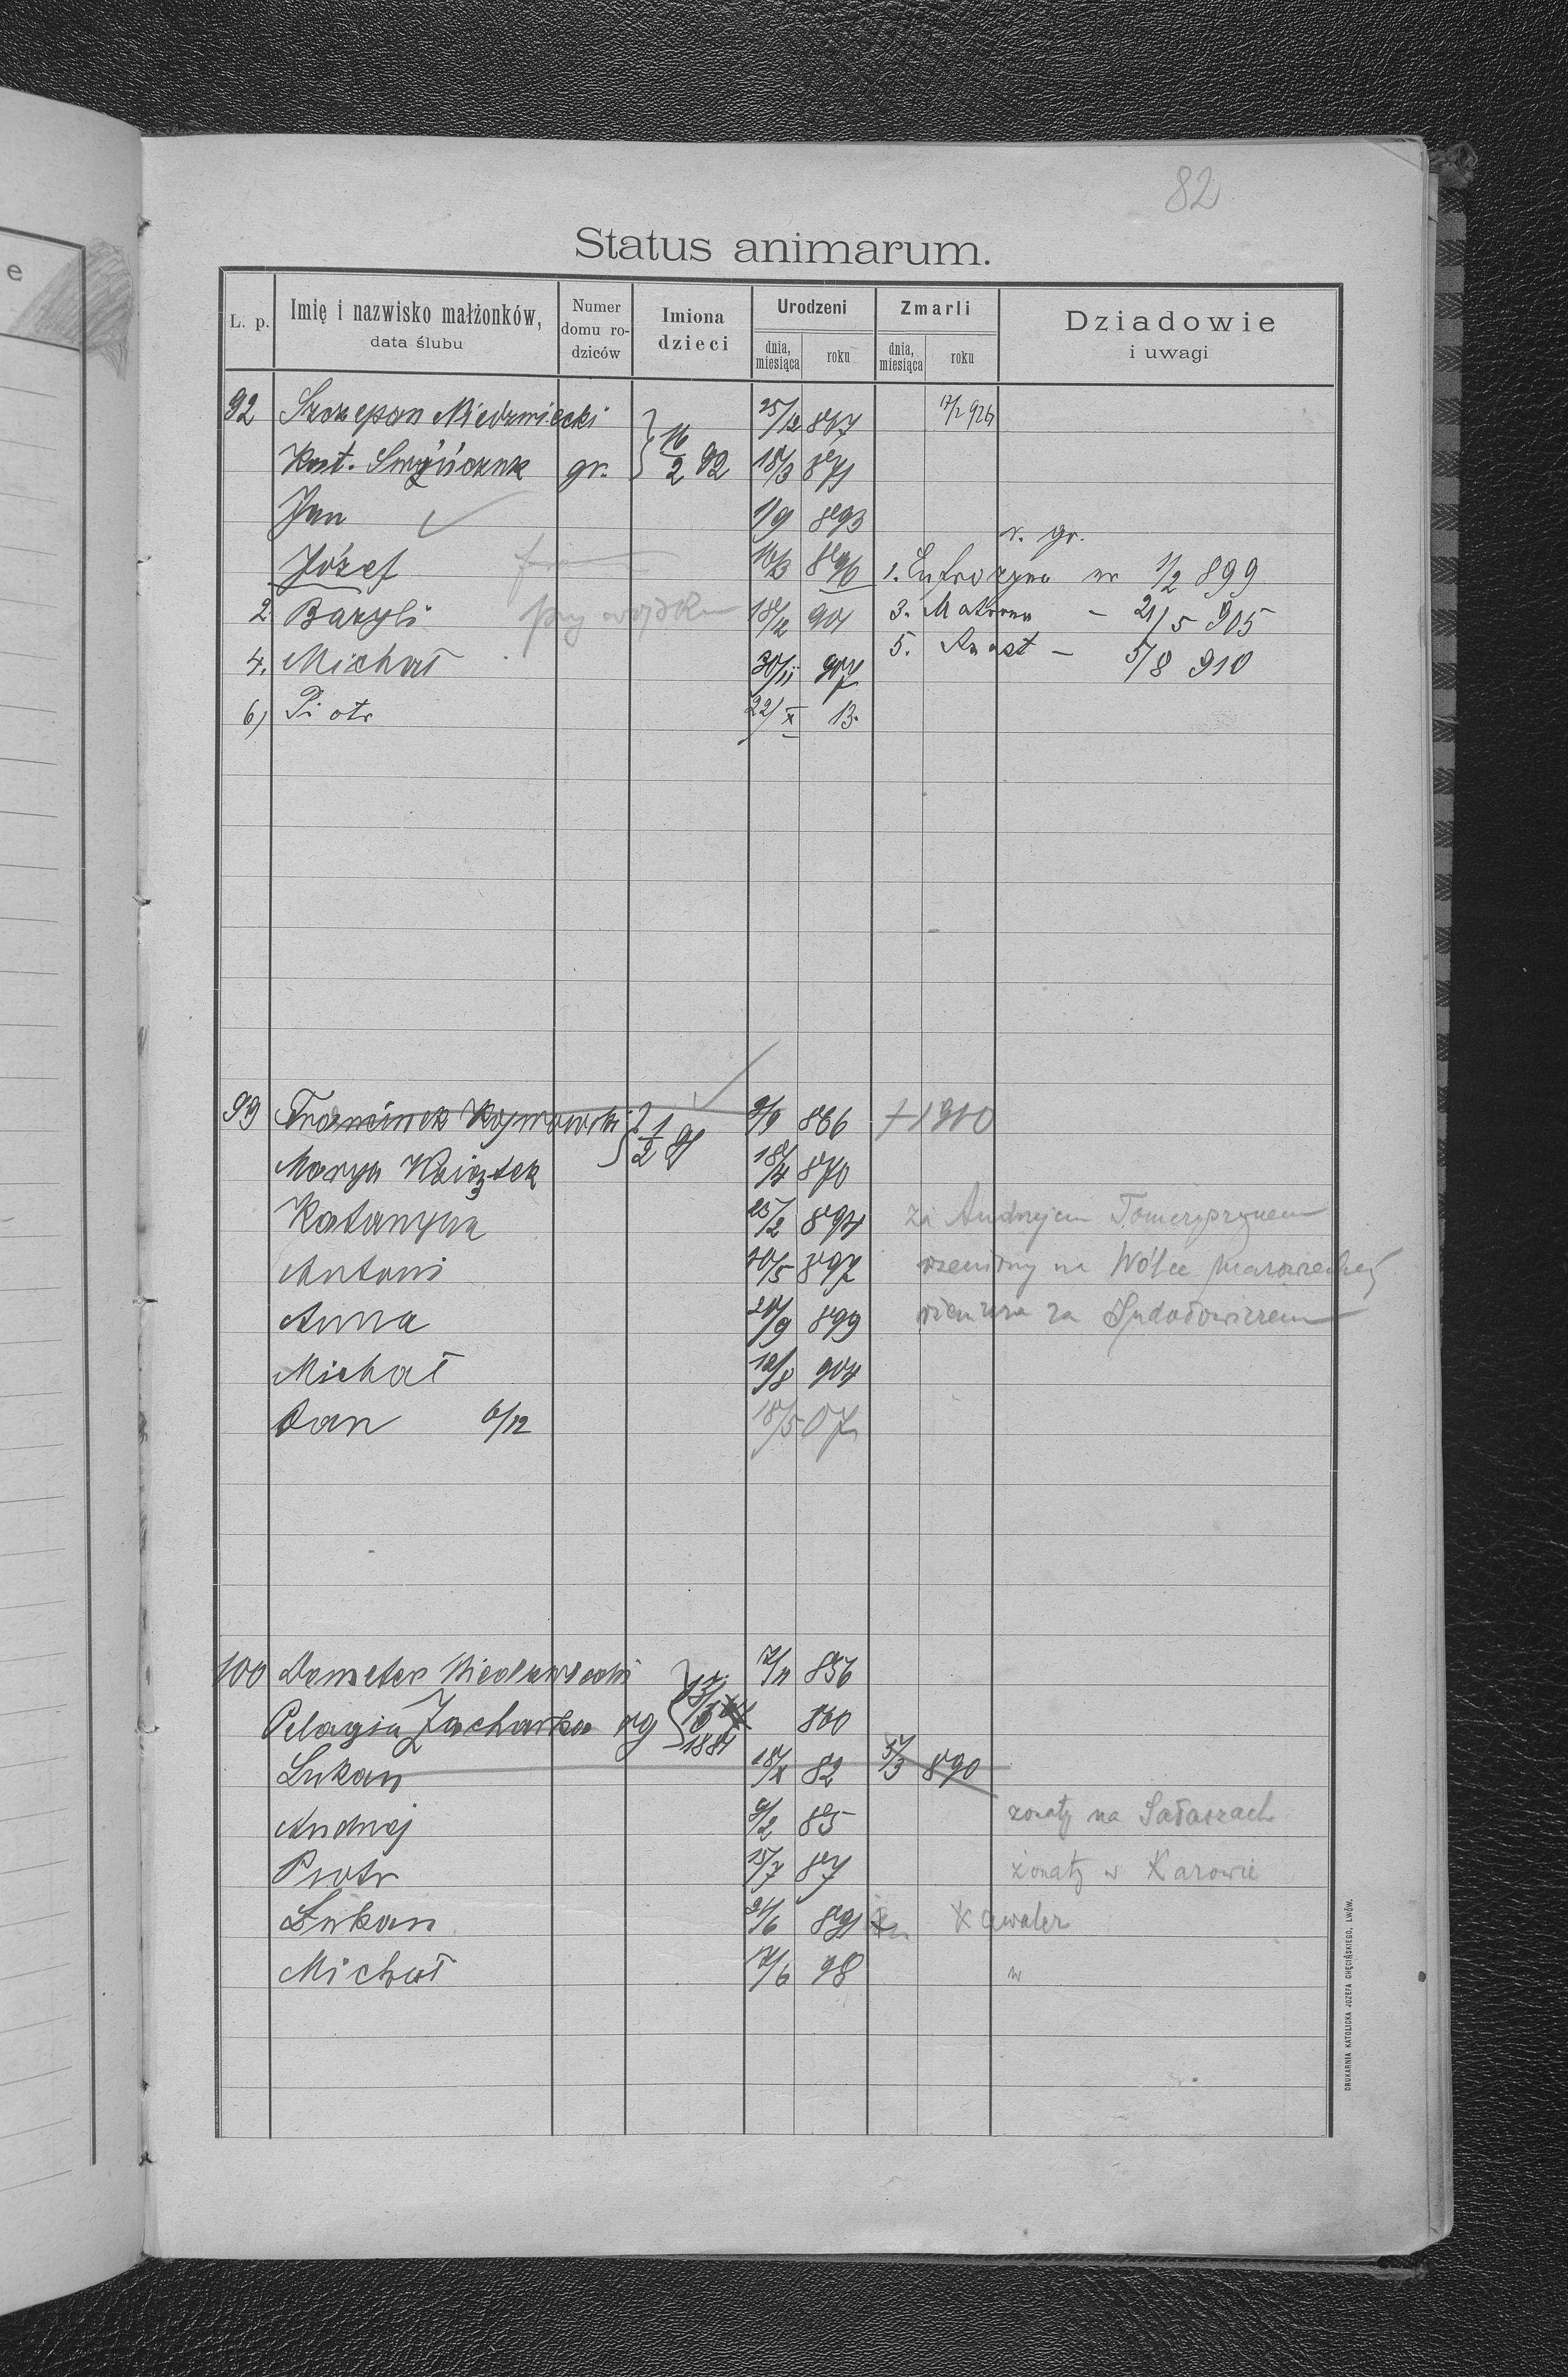 82
e
Status animarum.
L. p. Imię i nazwisko małżonków, data ślubu Numer domu rodziców Imiona dzieci Urodzeni dnia, miesiąca roku Zmarli dnia, miesiąca roku Dziadowie i uwagi
92 Szczepan Niedzwiecki 25/12 867 17/2 926
Kat. gr. 16/2 92 18/3 871
Jan 1/9 893 r. gr.
Józef 896 1. Eufrozyna ur 1/2 899
2 Bazyli przy wojsku 18/12 901 3. Matrona – 21/5 905
4. Michał 30/11 907 5. Anast – 5/8 910
6) Piotr 22/X 13.
93 Franciszek 1/2 91 9/9 866 + 1910
Marya Książek 18/4 870
Katarzyna 25/2 894 za Andrzejem
Antoni 10/5 897 ożeniony na Wólce Mazowieckiej
Anna 899 za
Michał 904
Jan 6/12 18/5 07
100 Demeter Niedzwiecki 7/11 856
Pelagia Zacharko rg 1881 860
Lukan 18/X 82 5/3 890
Andrzej 9/2 85 żonaty na Sałaszach
Piotr 15/7 87 żonaty w Karowie
Lukan 24/6 891 Kawaler
Michał 17/6 98 "
DRUKARNIA KATOLICKA JÓZEFA CHĘCIŃSKIEGO, LWÓW.